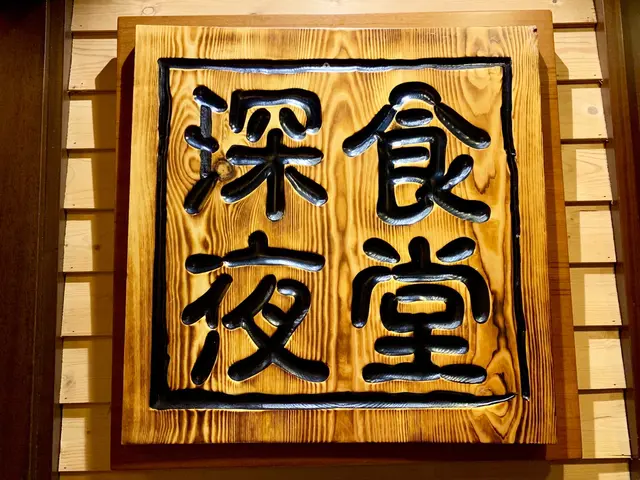 深夜
食堂